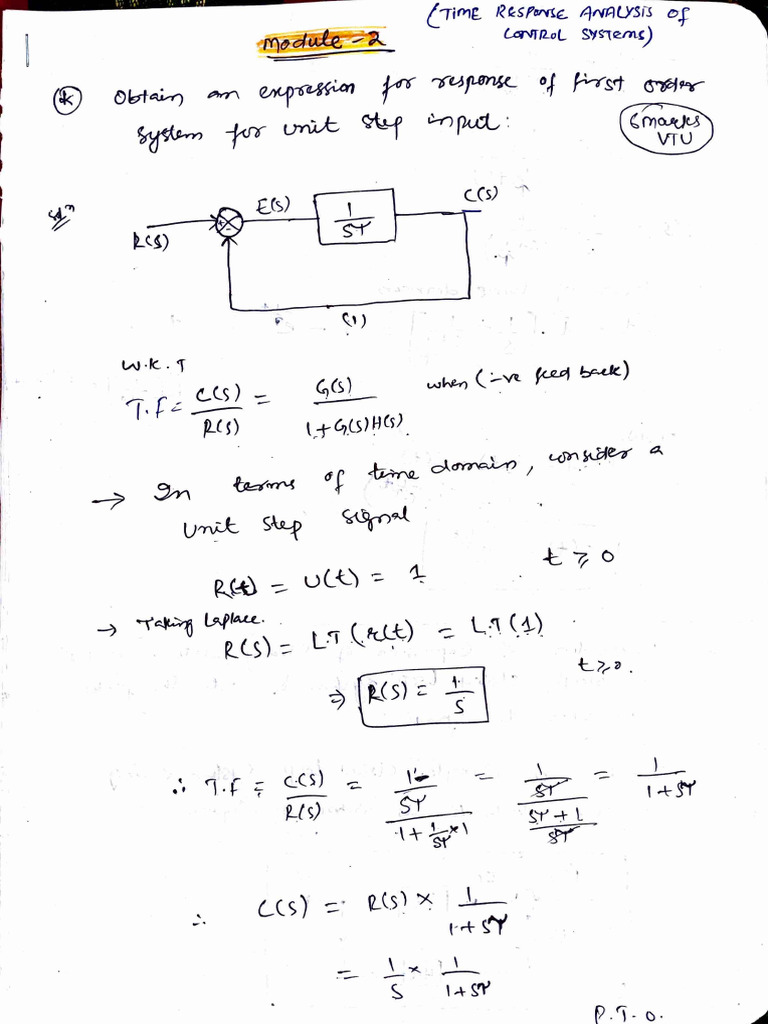 (TIME RESPONSE ANALYSIS OF
CONTROL SYSTEMS)
Module-2
* Obtain an expression for response of first order
system for unit step input:
6marks
VTU
Solⁿ
R(S) + - E(S) 1/Sτ C(S)
(1)
W.K.T
T.F = C(S)/R(S) = G(S)/(1+G(S)H(S)) when (-ve feed back)
→ In terms of time domain, consider a
unit step signal
R(t) = U(t) = 1 t ≥ 0
→ Taking Laplace.
R(S) = L.T (r(t)) = L.T (1)
t ≥ 0.
⇒ R(S) = 1/S
∴ T.F = C(S)/R(S) = (1/Sτ)/(1+1/Sτ×1) = (1/Sτ)/((Sτ+1)/Sτ) = 1/(1+Sτ)
∴ C(S) = R(S) × 1/(1+Sτ)
= 1/S × 1/(1+Sτ)
P.T.O.